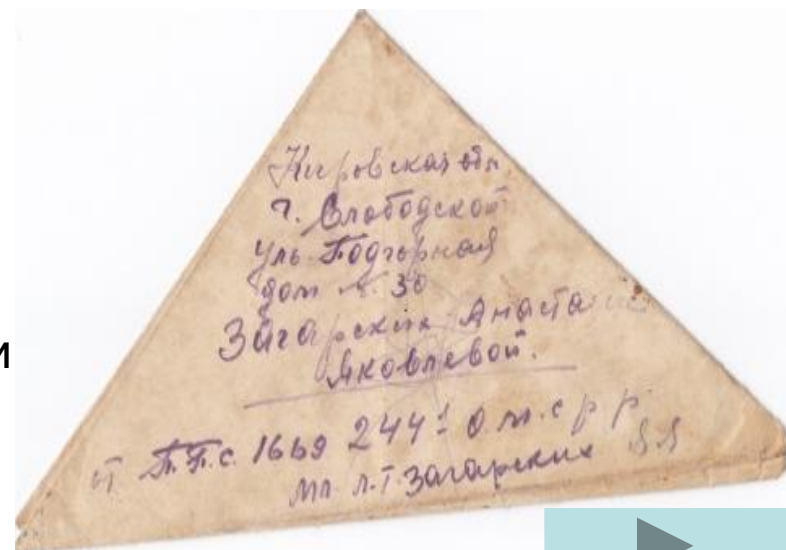 Кировская обл.
г. Слободской
уль Подгорная
дом № 30
Загарских Анастасии
Яковлевой.
и
от П.П.С. 1669 244
мл. л-т Загарских